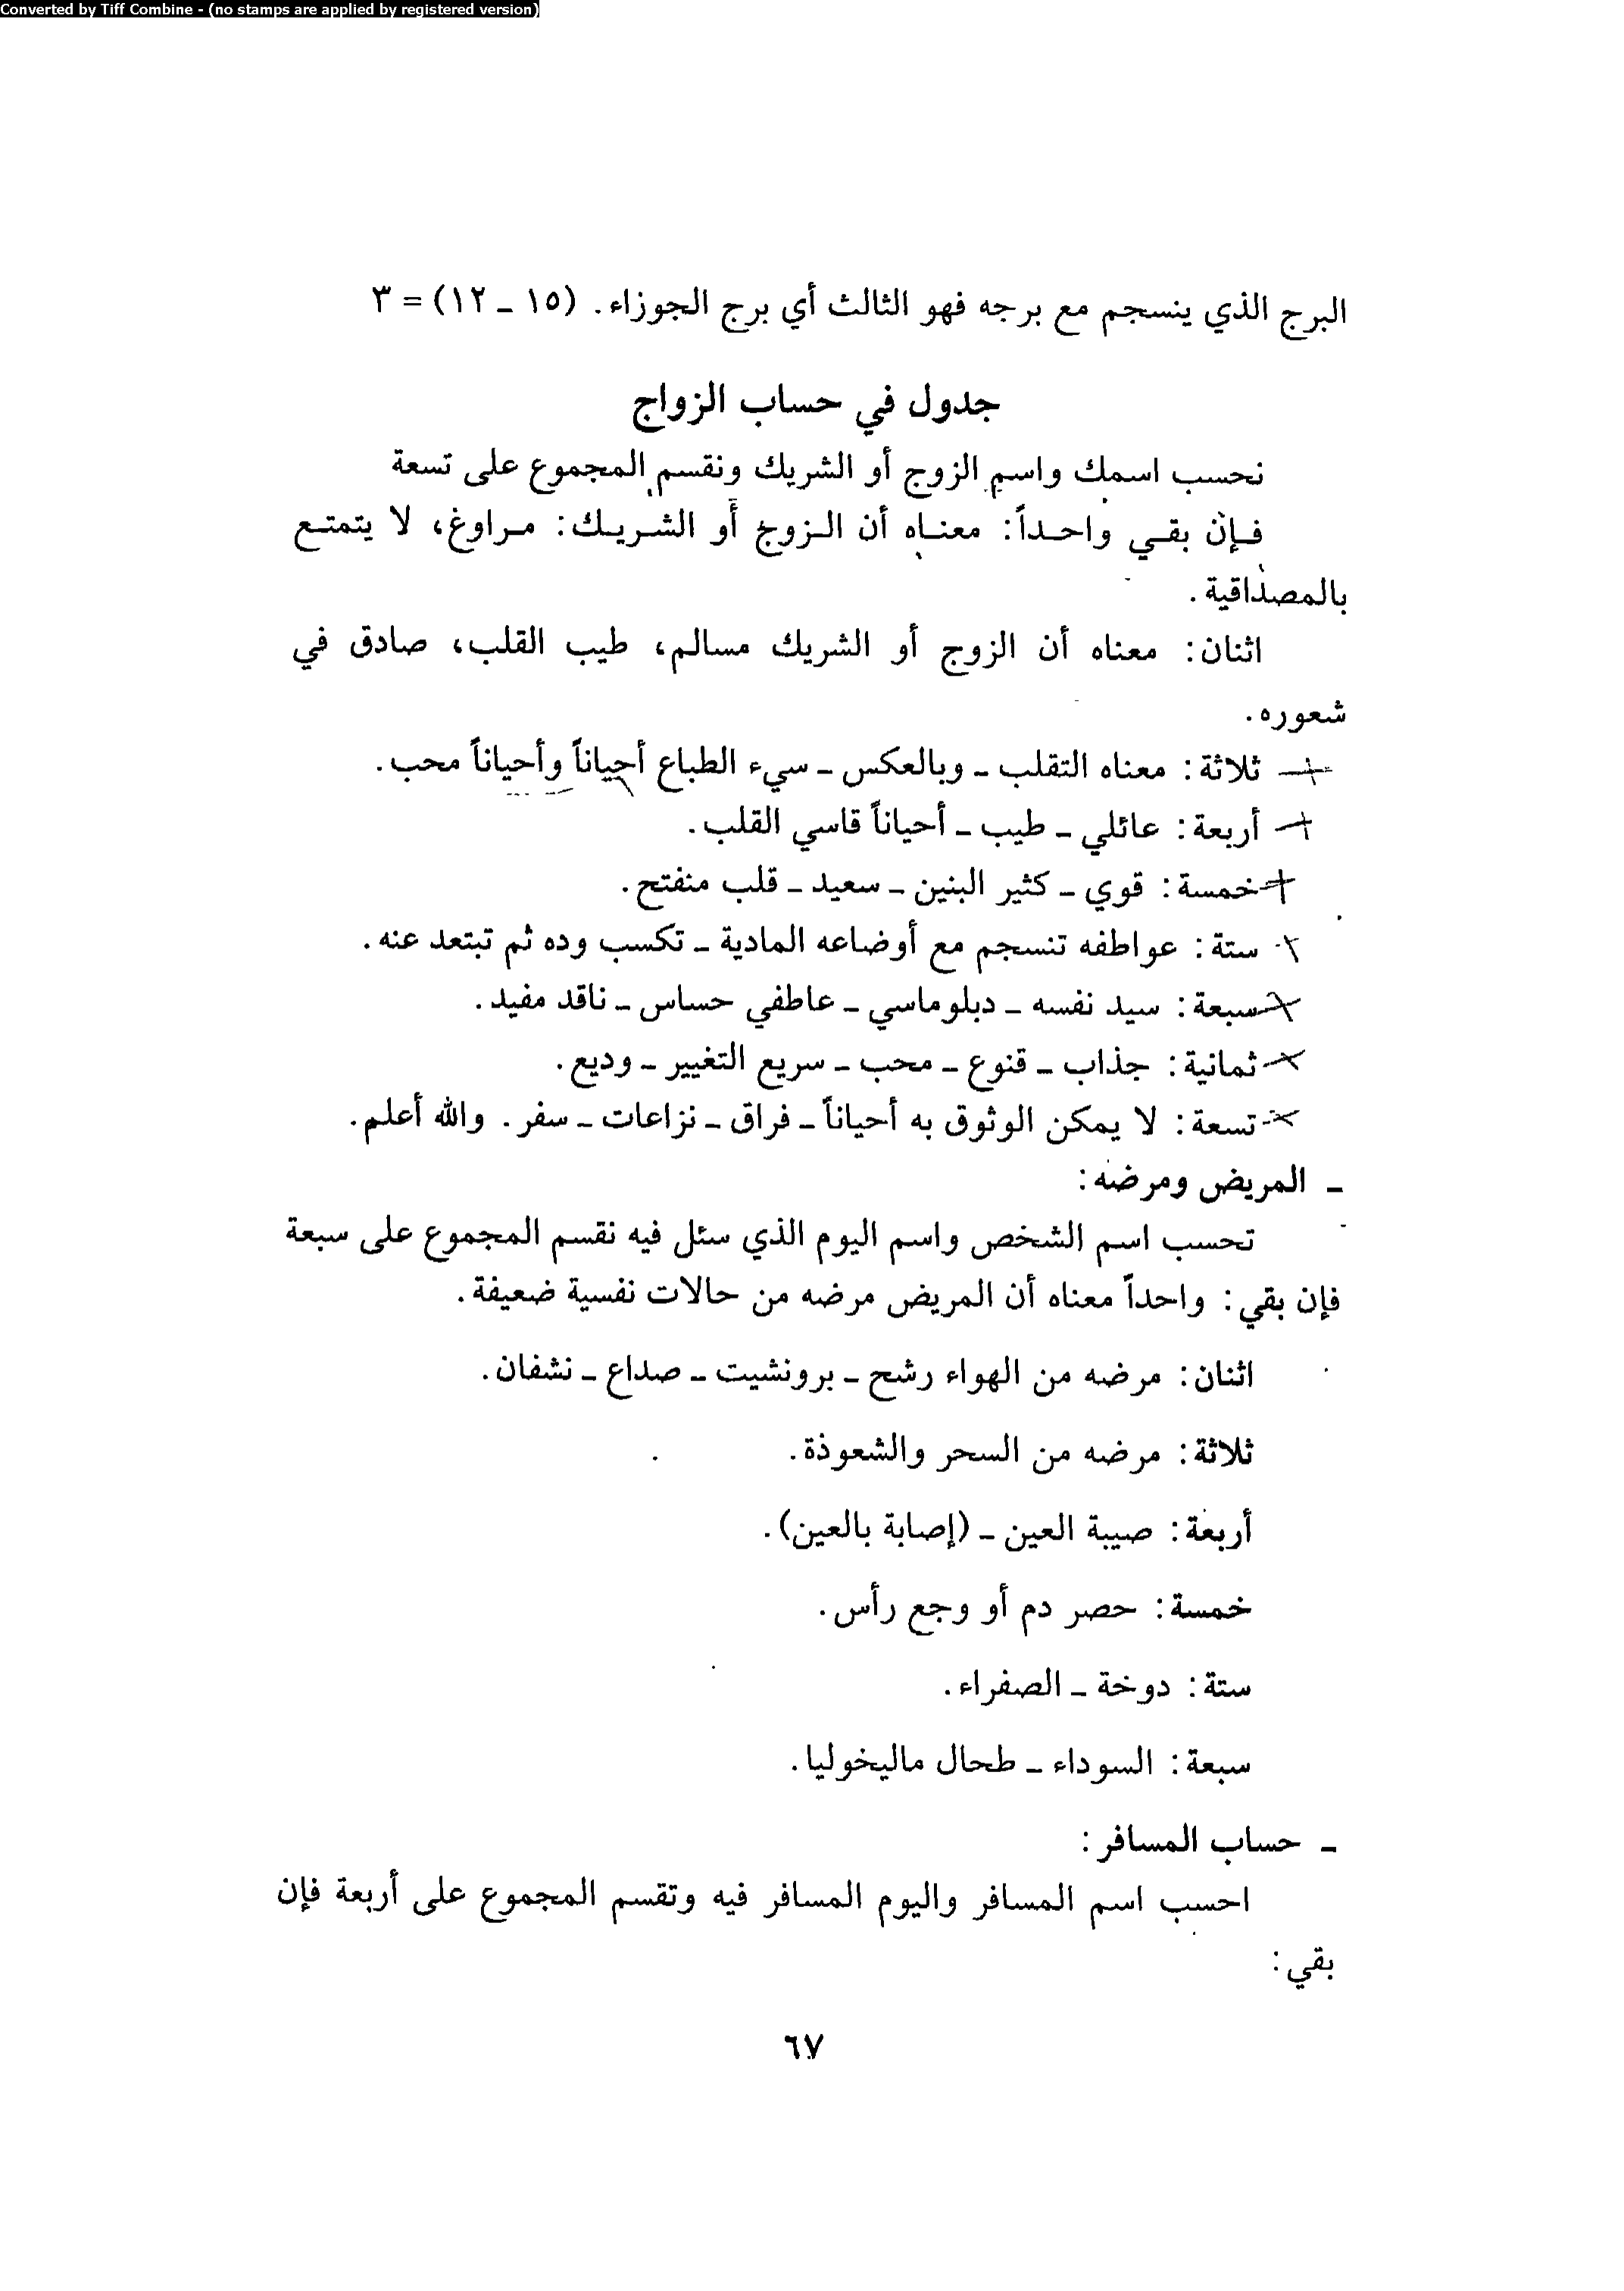 Converted by Tiff Combine - (no stamps are applied by registered version)
البرج الذي ينسجم مع برجه فهو الثالث أي برج الجوزاء. (١٥ - ١٢) = ٣
جدول في حساب الزواج
نحسب اسمك واسم الزوج أو الشريك ونقسم المجموع على تسعة
فإن بقي واحداً: معناه أن الزوج أو الشريك: مراوغ، لا يتمتع
بالمصداقية.
اثنان: معناه أن الزوج أو الشريك مسالم، طيب القلب، صادق في
شعوره.
ثلاثة: معناه التقلب - وبالعكس - سيء الطباع أحياناً وأحياناً محب.
أربعة: عائلي - طيب - أحياناً قاسي القلب.
خمسة: قوي - كثير البنين - سعيد - قلب منفتح.
ستة: عواطفه تنسجم مع أوضاعه المادية - تكسب وده ثم تبتعد عنه.
سبعة: سيد نفسه - دبلوماسي - عاطفي حساس - ناقد مفيد.
ثمانية: جذاب - قنوع - محب - سريع التغيير - وديع.
تسعة: لا يمكن الوثوق به أحياناً - فراق - نزاعات - سفر. والله أعلم.
- المريض ومرضه:
تحسب اسم الشخص واسم اليوم الذي سئل فيه نقسم المجموع على سبعة
فإن بقي: واحداً معناه أن المريض مرضه من حالات نفسية ضعيفة.
اثنان: مرضه من الهواء رشح - برونشيت - صداع - نشفان.
ثلاثة: مرضه من السحر والشعوذة.
أربعة: صيبة العين - (إصابة بالعين).
خمسة: حصر دم أو وجع رأس.
ستة: دوخة - الصفراء.
سبعة: السوداء - طحال ماليخوليا.
- حساب المسافر:
احسب اسم المسافر واليوم المسافر فيه وتقسم المجموع على أربعة فإن
بقي:
٦٧